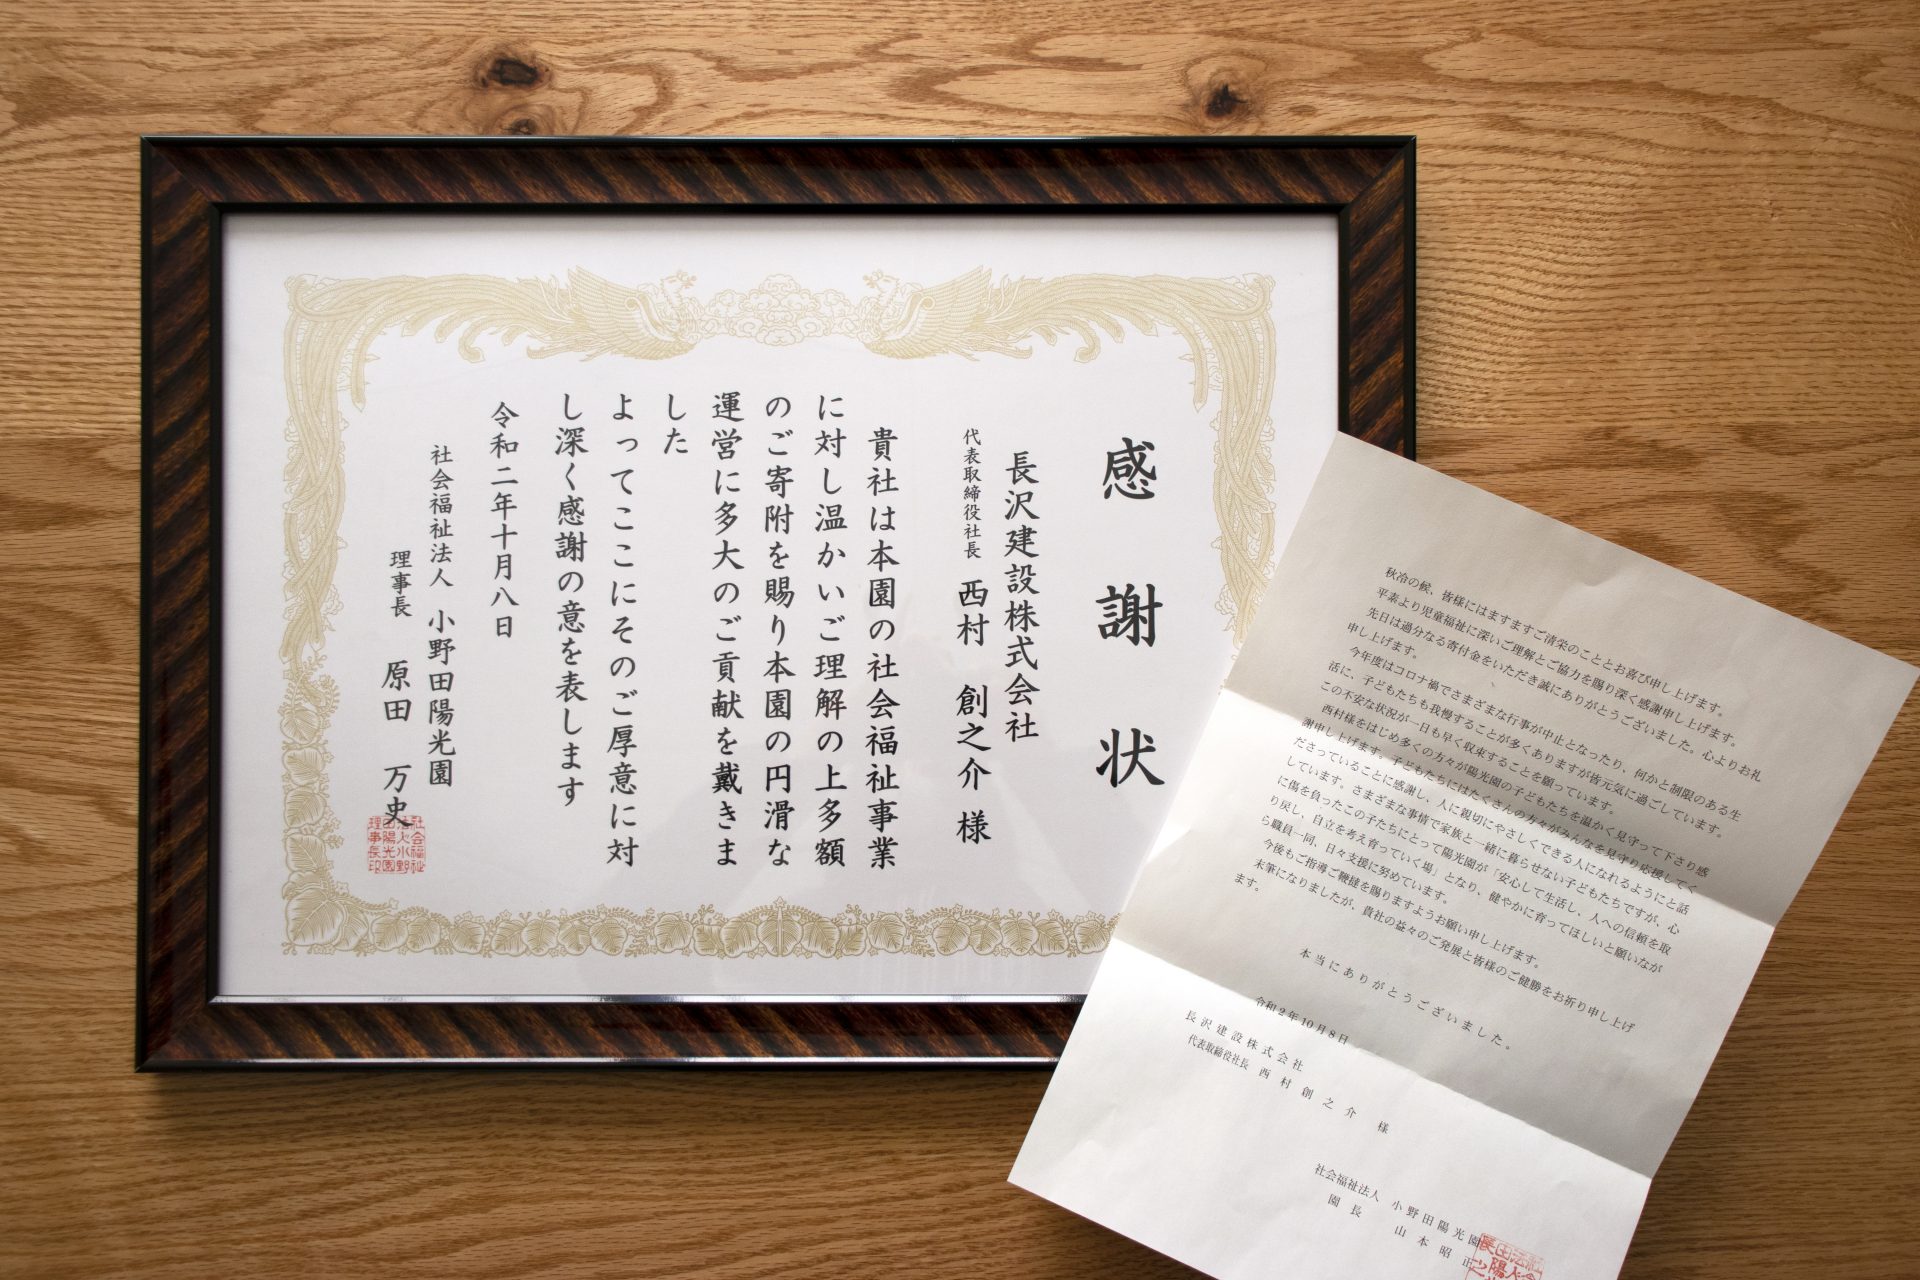 感謝状
長沢建設株式会社
代表取締役社長 西村 創之介 様
貴社は本園の社会福祉事業
に対し温かいご理解の上多額
のご寄附を賜り本園の円滑な
運営に多大のご貢献を戴きま
した
よってここにそのご厚意に対
し深く感謝の意を表します
令和二年十月八日
社会福祉法人 小野田陽光園
理事長 原田 万史
秋冷の候、皆様にはますますご清栄のこととお喜び申し上げます。
平素より児童福祉に深いご理解とご協力を賜り深く感謝申し上げます。
先日は過分なる寄付金をいただき誠にありがとうございました。心よりお礼
申し上げます。
今年度はコロナ禍でさまざまな行事が中止となったり、何かと制限のある生
活に、子どもたちも我慢することが多くありますが皆元気に過ごしています。
この不安な状況が一日も早く収束することを願っています。
西村様をはじめ多くの方々が陽光園の子どもたちを温かく見守って下さり感
謝申し上げます。子どもたちにはたくさんの方々がみんなを見守り応援してく
ださっていることに感謝し、人に親切にやさしくできる人になれるようにと話
しています。さまざまな事情で家族と一緒に暮らせない子どもたちですが、心
に傷を負ったこの子たちにとって陽光園が「安心して生活し、人への信頼を取
り戻し、自立を考え育っていく場」となり、健やかに育ってほしいと願いなが
ら職員一同、日々支援に努めています。
今後もご指導ご鞭撻を賜りますようお願い申し上げます。
末筆になりましたが、貴社の益々のご発展と皆様のご健勝をお祈り申し上げ
ます。
本当にありがとうございました。
令和2年10月8日
長沢建設株式会社
代表取締役社長 西村創之介 様
社会福祉法人 小野田陽光園
園長 山本昭正